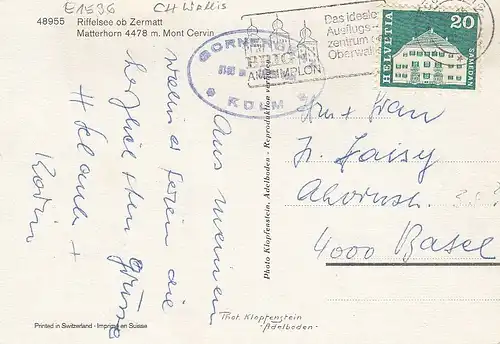 E1596 CH Wallis
48955 Riffelsee ob Zermatt
Matterhorn 4478 m. Mont Cervin
GORNERGRAT
KULM
BRIG
AM SIMPLON
Das ideale
Ausflugs-
zentrum
Oberwallis
HELVETIA 20
SAMEDAN
Aus meinen
Ferien die
herzlichsten Grüsse
Herr + Frau
Ahornstr.
4000 Basel
Photo Klopfenstein, Adelboden - Reproduktion verboten
Phot. Klopfenstein
- Adelboden -
Printed in Switzerland - Imprimé en Suisse